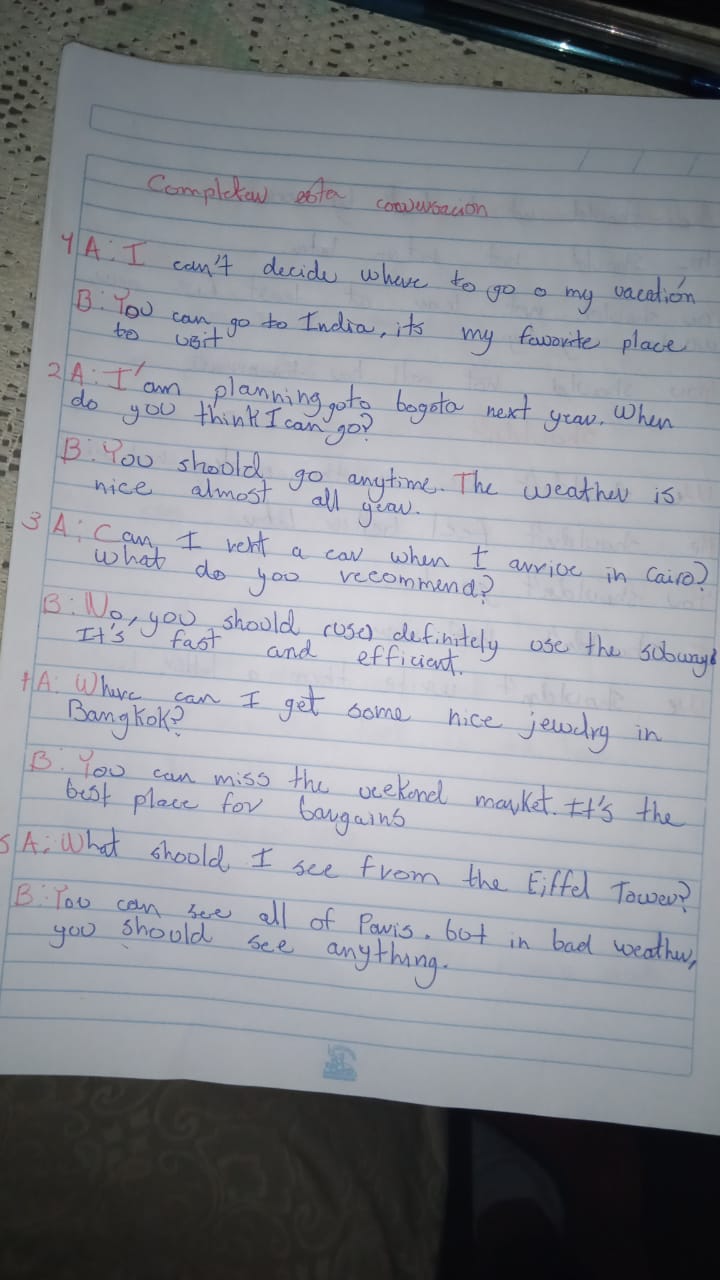 Completar esta conversación
1 A: I can't decide where to go o my vacatión
B: You can go to India, its my favorite place
to visit
2 A: I'am planning goto bogota next year. When
do you think I can go?
B: You should go anytime. The weather is
nice almost all year.
3 A: Can I rent a car when I arrive in Cairo?
What do you recommend?
B: No, you should (use) definitely use the subway
It's fast and efficient.
4 A: Where can I get some nice jewelry in
Bangkok?
B: You can miss the weekend market. It's the
best place for bargains
5 A: What should I see from the Eiffel Tower?
B: You can see all of Paris. but in bad weather,
you should see anything.